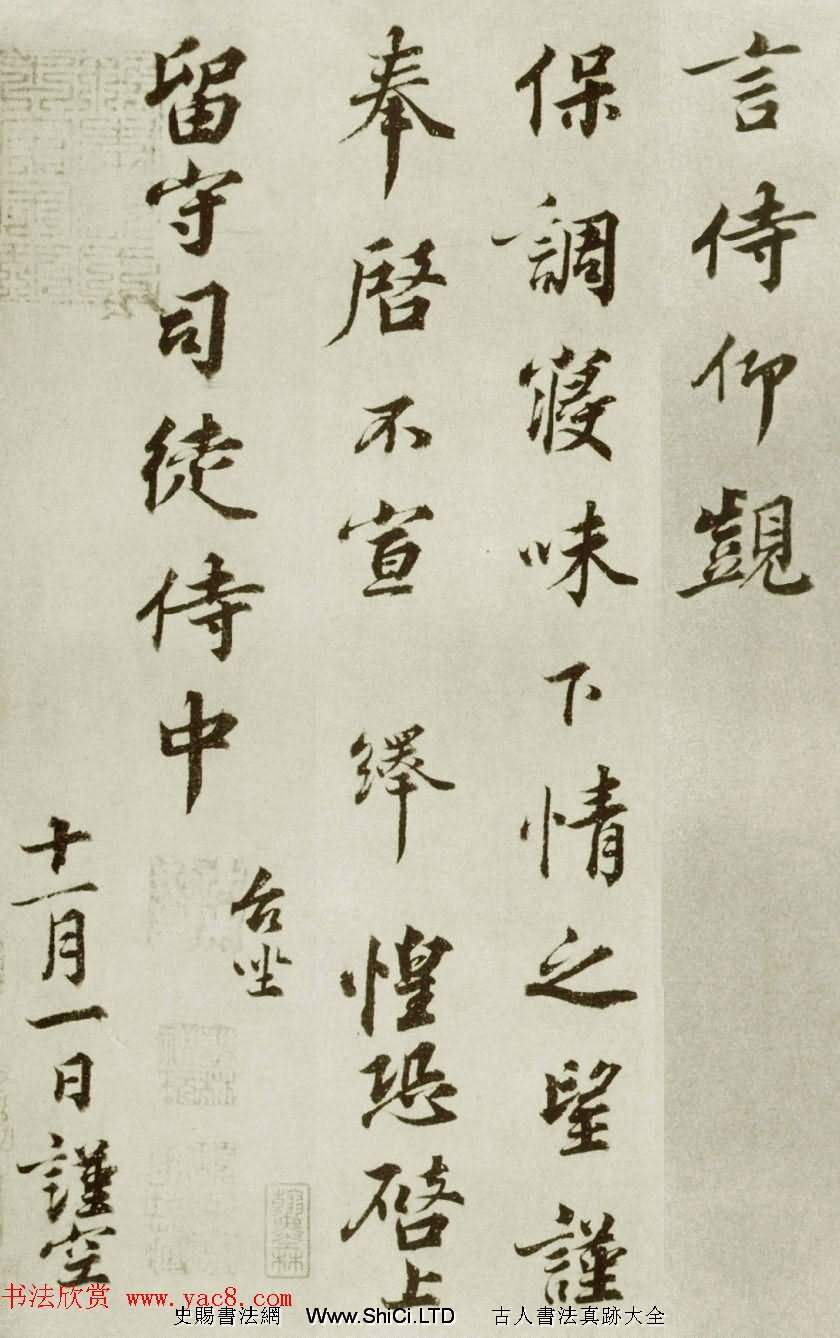 言侍仰覬
保調寢味下情之望謹
奉啓不宣 繹惶恐啓上
留守司徒侍中
台坐
十一月一日謹空
书法欣赏 www.yac8.com
史賜書法網 Www.ShiCi.LTD 古人書法真跡大全